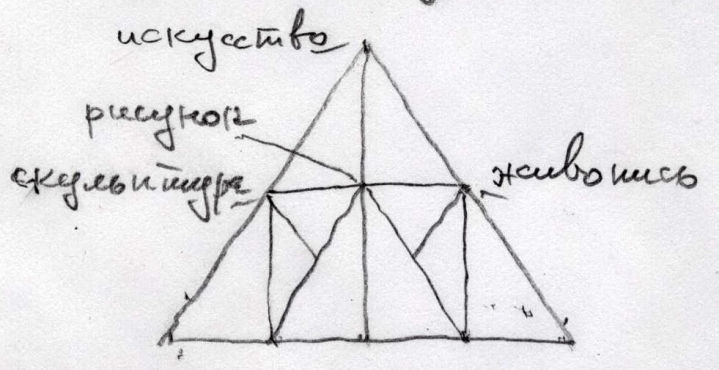 искусство
рисунок
скульптура
живопись